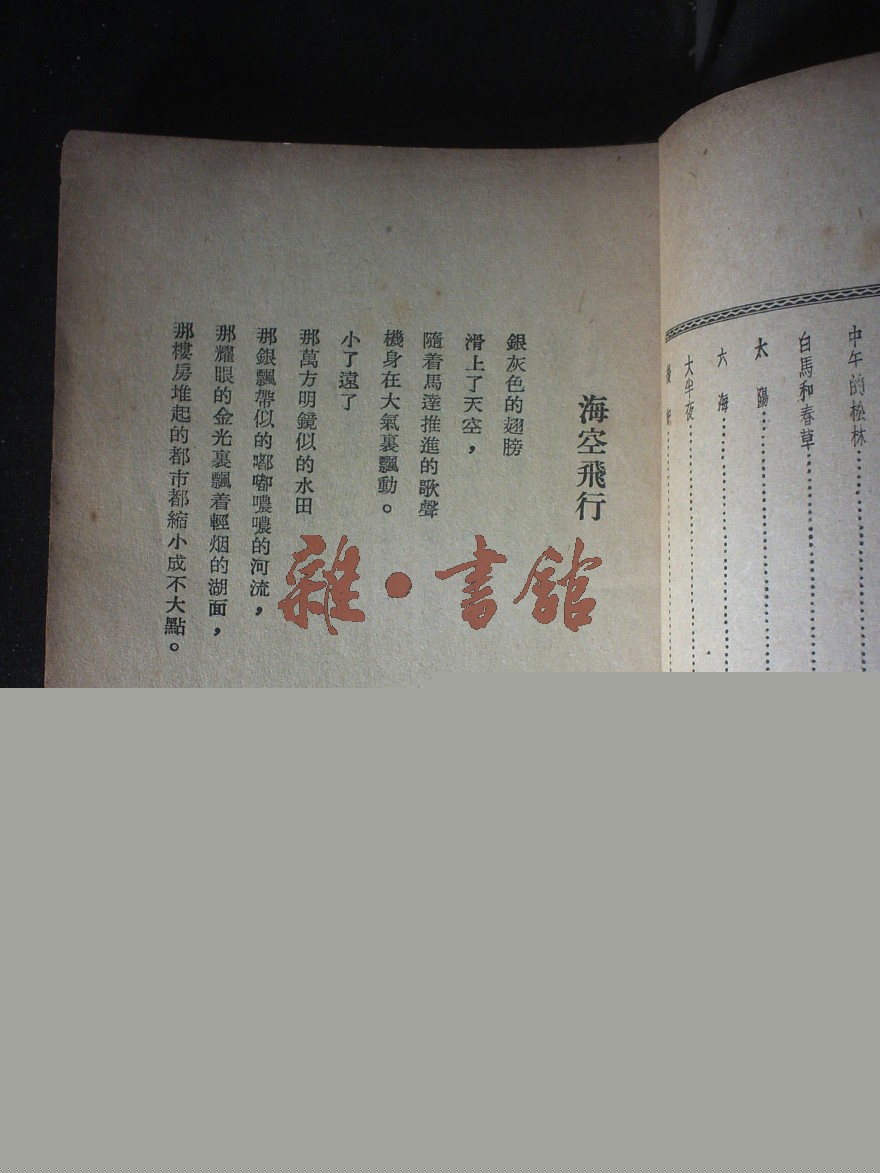 中午的松林
白馬和春草
太陽
六海
大半夜
後
海空飛行
銀灰色的翅膀
滑上了天空，
隨着馬達推進的歌聲
機身在大氣裏飄動。
小了遠了
那萬方明鏡似的水田
那銀飄帶似的嘟嘟噥噥的河流，
那耀眼的金光裏飄着輕烟的湖面，
那樓房堆起的都市都縮小成不大點。
雜·書館